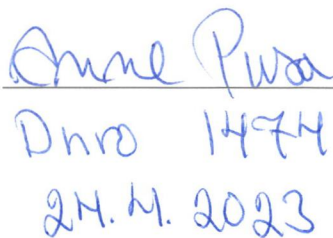 Anne Pusa
Dnro 1474
24.4.2023